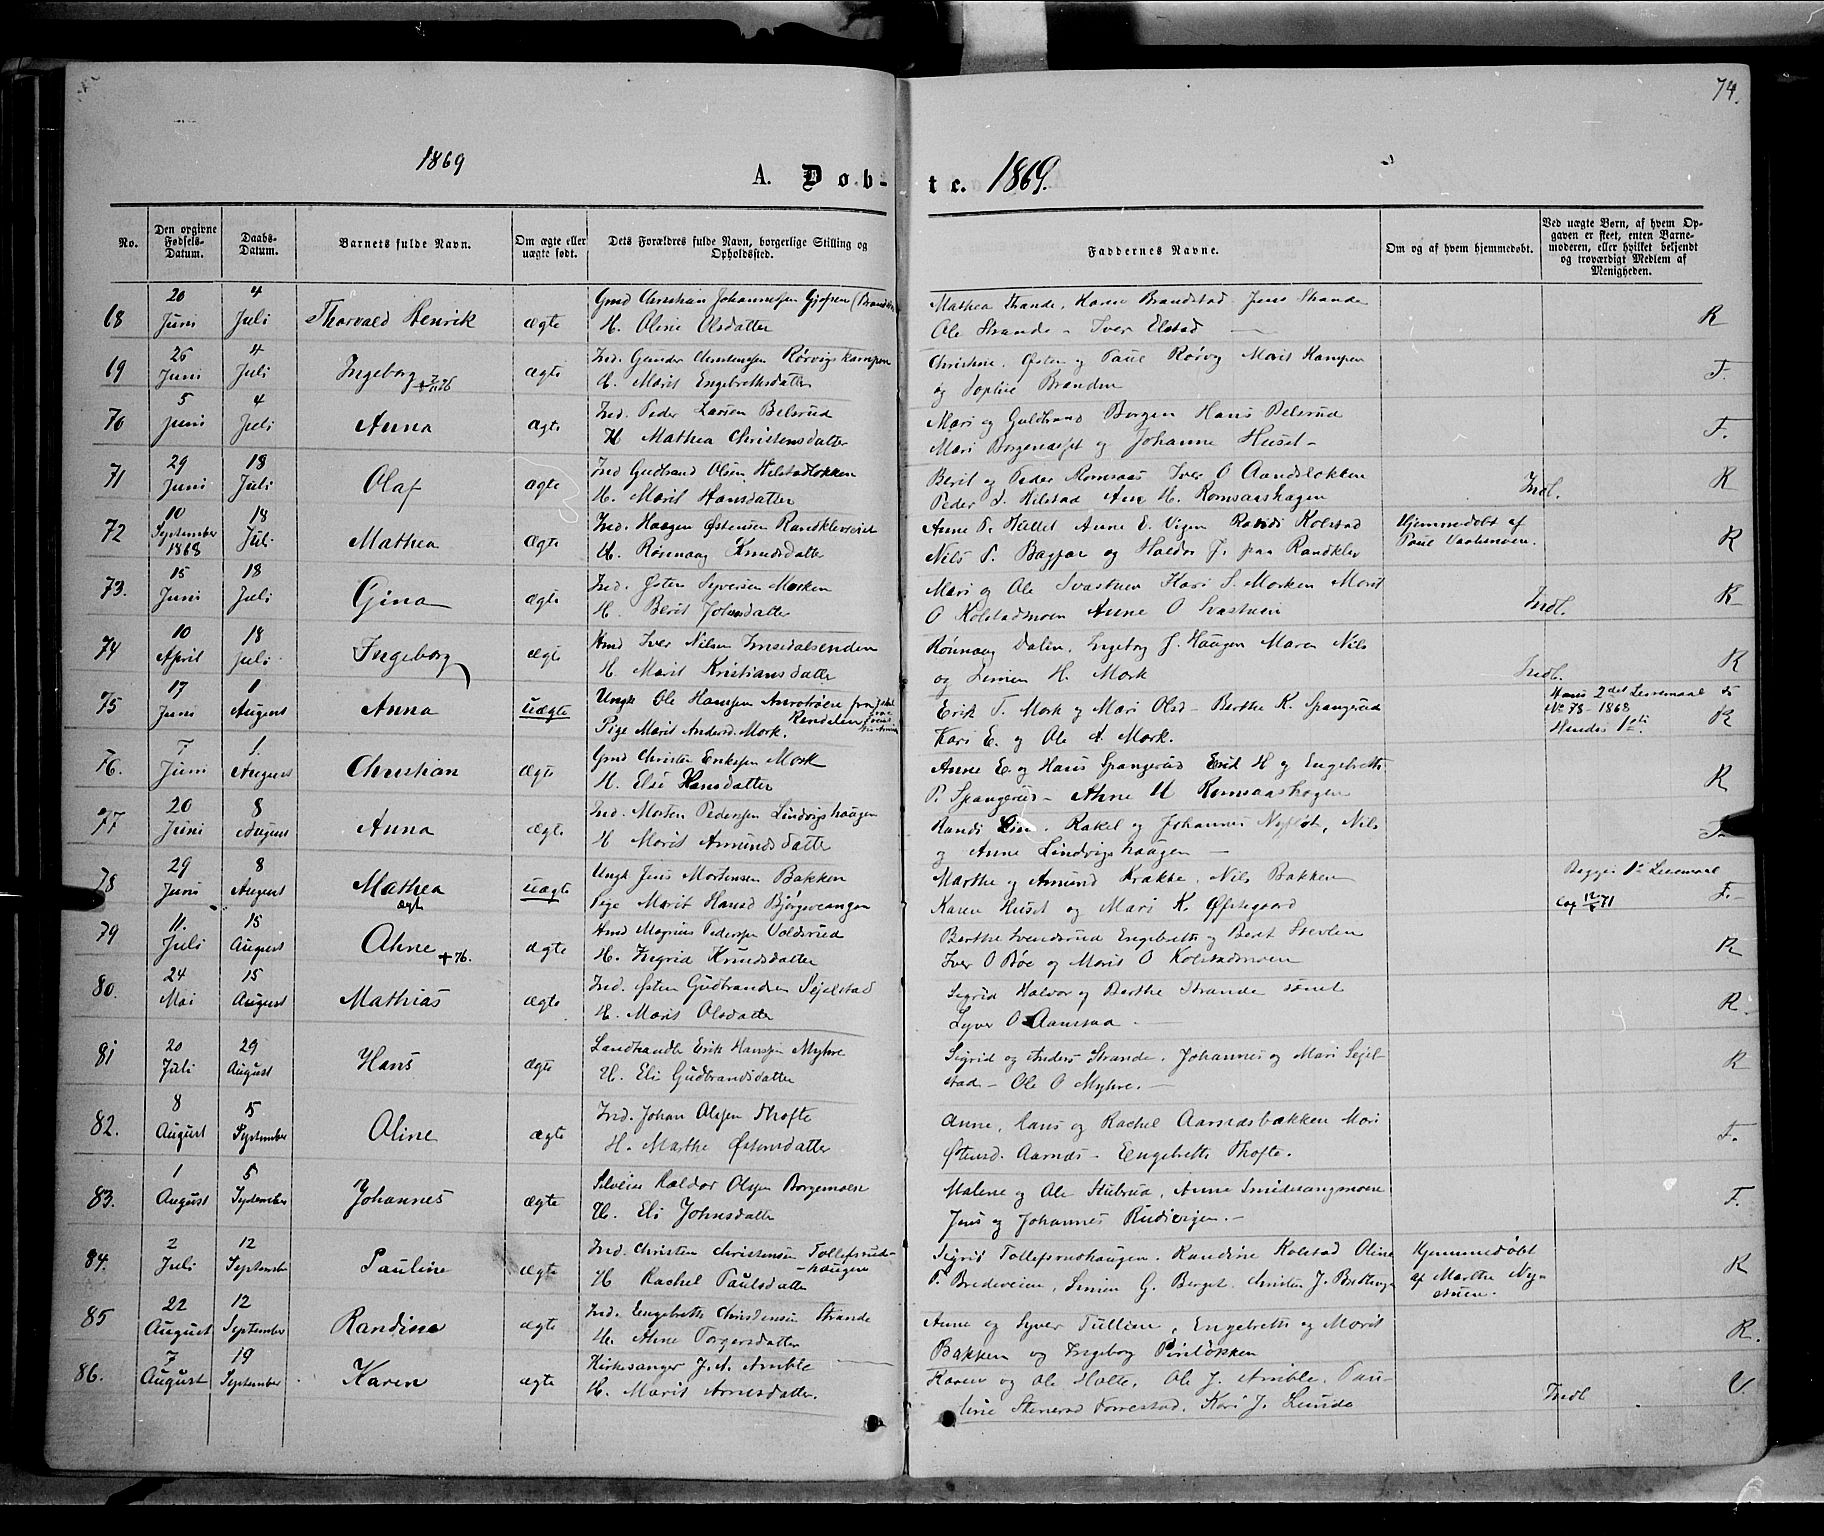 74.
1869
A. Døb-
te. 1869.
No.
Den opgivne Fødsels-Datum.
Daabs-Datum.
Barnets fulde Navn.
Om ægte eller uægte født.
Dets Forældres fulde Navn, borgerlige Stilling og Opholdssted.
Faddernes Navne.
Om og af hvem hjemmedøbt.
Ved uægte Børn, af hvem Opgaven er skeet, enten Barnemoderen, eller hvilket bekjendt og troværdigt Medlem af Menigheden.
68 20 Juni 4 Juli Thorvald Henrik ægte Gmd Christian Johannesen Gjøpsen
H. Oline Olsdatter
Mathea Strande, Karen Brandstad. Jens Strande
Ole Strande - Iver Elstad R
69 26 Juni 4 Juli Ingeborg ægte Ind. Gunder Christensen Rørvigskampen
H. Marit Engebretsdatter
Christine, Østen og Paul Rørvg Marit Kampen
og Sophie Branden F.
70 5 Juni 4 Juli Anna ægte Ind. Peder Larsen Belsrud
H Mathea Christensdatter
Mari og Guldbrand Borgen Hans Belsrud
Mari og Johanne Huset- F.
71 29 Juni 18 Juli Olaf ægte Ind Gudbrand Olsen Hilstadløkken
H. Marit Hansdatter
Berit og Peder Romsaas Iver O Aandsløkken
Peder S. Hilstad Ane H. Romsaashagen Indl. R
72 10 September 1868 18 Juli Mathea ægte Ind. Haagen Østensen
H. Rønnaug Knudsdatter
Anne P. Hullet Anne E. Vigen Randi Kolstad
Nils P. Bagjar og Haldor J. paa Randklev
Hjemmedøbt af
Paul R
73. 15 Juni 18 Juli Gina ægte Ind. Østen Syversen Morken
H. Berit Johnsdatter
Mari og Ole Svastuen Kari S. Morken Marit
O Kolstadmoen Anne O Svastuen Indl. R
74 10 April 18 Juli Ingeborg ægte Iver Nilsen Imsdalsenden
H. Marit Kristiansdatter
Rønnaug Dalen, Ingeborg J. Haugen Maren Nils
og Simen H. Mork Indl. R
75 17 Juni 1 August Anna uægte Ungk Ole Hansen fra
Rendalen
Pige Marit Andersd. Mork.
Erik T. Mork og Mari Olsd - Berthe K. Spangrud
Kari E. og Ole A. Mork.
Hans 2det Leiermaal
No 78 - 1868
Hendes 1ste. R
76. 7 Juni 1. August Christian ægte Gmd Christen Eriksen Mork
H. Elsi Hansdatter
Anne E. og Hans Spangerud Erik H og Engebrett
P. Spangerud - Ahne H Romsaashagen R
77 20 Juni 8 August Anna ægte Ind. Morten Pedersen Lindvigshaugen
H Marit Amundsdatter
Randi Lie. Rakel og Johannes Nyfløt, Nils
og Anne Lindvigshaugen F.
78 29 Juni 8 August Mathea ægte uægte Ungk Jens Mortensen Bakken
Pige Marit Hansd Bjørgevangen
Marthe og Amund Krakke, Nils Bakken
Karen Huset og Mari K. Øfstegaard
Begges 1ste Leiermaal
Cop 71 F.
79 11. Juli 15 August Ahne + 76. ægte Magnus Pedersen Voldsrud
H. Ingrid Knudsdatter
Berthe Svendsrud Engebrett og Berit Stevlen
Iver O Bøe og Marit O Kolstadmoen R
80. 24 Mai 15 August Mathias ægte Ind. Østen Gudbrandsen Sejelstad
H. Marit Olsdatter
Sigrid Halvor og Berthe Strande samt
Syver O Aanstad R.
81 20 Juli 29 August Hans ægte Landhandler Erik Hansen Myhre
H. Eli Gudbrandsdatter
Sigrid og Anders Strande. Johannes og Mari Sejel-
stad - Ole O Myhre. R
82. 8 August 5 September Oline ægte Ind. Johan Olsen Thofte
H. Marthe Østensdatter
Anne, Hans og Rachel Aarnæsbakken Mari
Østensd. Aarnæs - Engebrett Thofte. F.
83. 1 August 5 September Johannes ægte Haldor Olsen Borgemoen
H. Eli Johnsdatter
Malene og Ole Stubrud, Anne Smidesangmoen
Jens og Johannes Rudivejen. F.
84. 2 Juli 12 September Pauline ægte Ind. Christen Christensen Tollefsrud-
haugen
H Rachel Paulsdatter
Sigrid Tollefsrudhaugen. Randine Kolstad Oline
P. Bredeveien, Simen G. Berget. Christen J.
Hjemmedøbt
af Marthe R
85 22 August 12 September Randine ægte Ind. Engebrett Christensen Strande
H. Ahne Torgersdatter
Anne og Syver Tulliene, Engebrett og Marit
Bakken og Ingeborg R.
86. 7 August 19 September Karen ægte Kirkesanger J. A. Amble
H. Marit Arnesdatter.
Karen og Ole Holte, Ole J. Amble, Pau-
line Stenersd Forrestad. Kari J. Lunde Indl V.